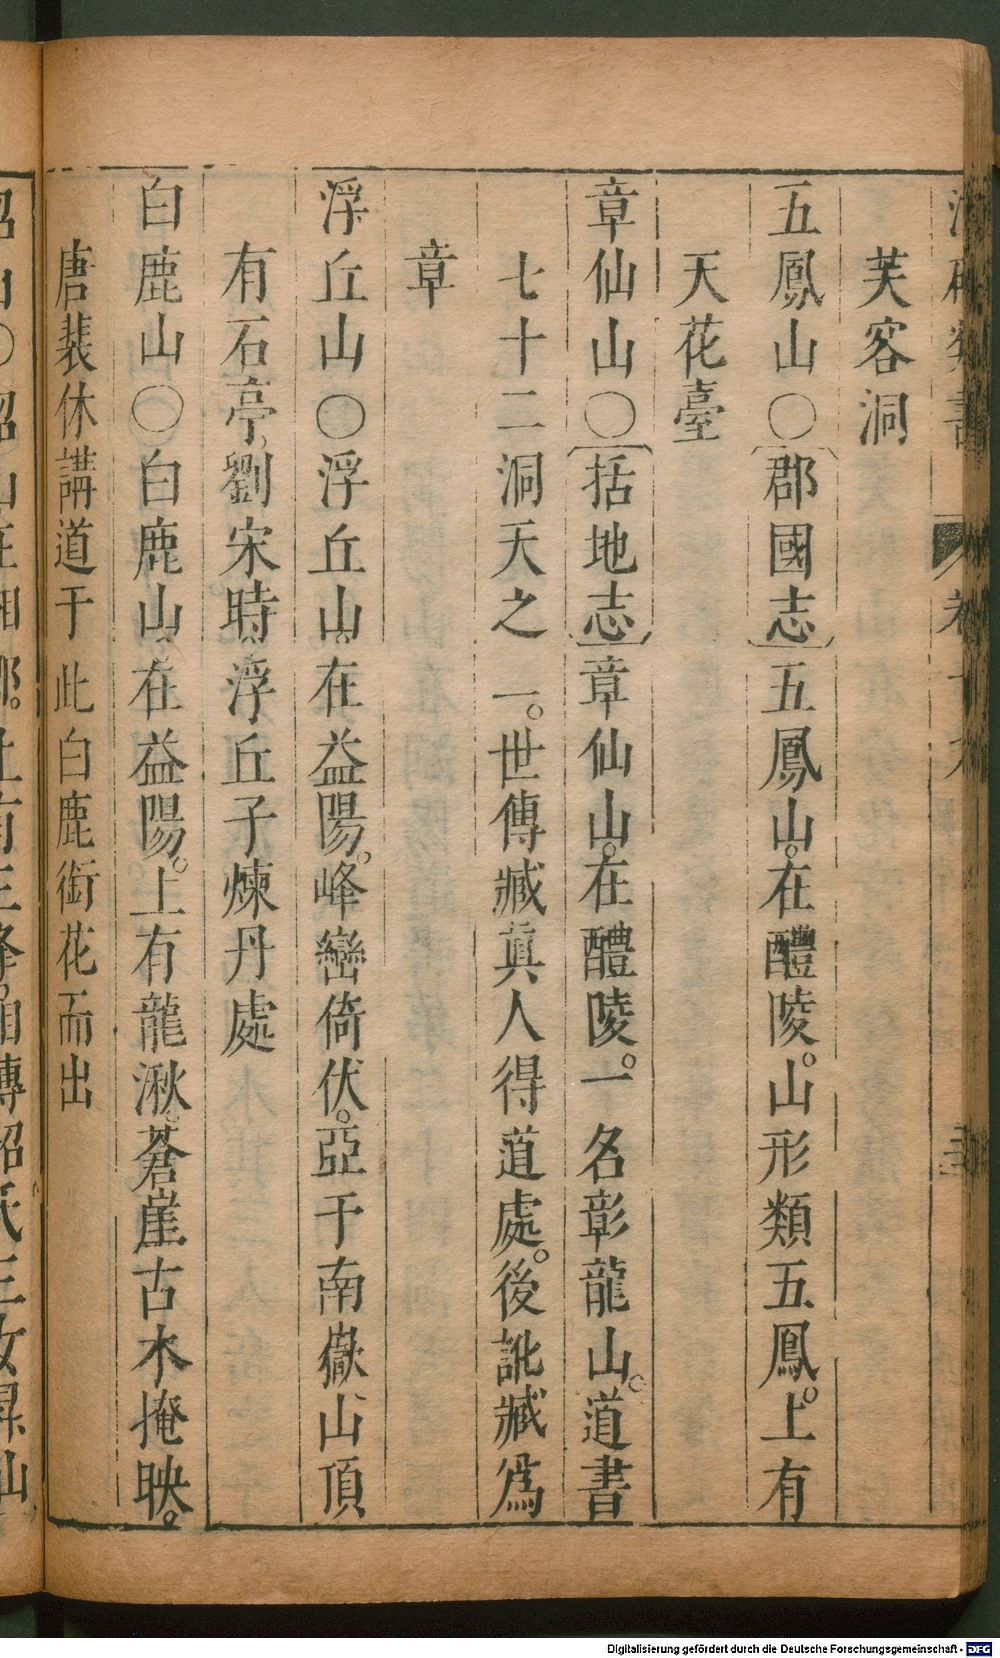 芙容洞
五鳳山〇〔郡國志〕五鳳山。在醴陵。山形類五鳳。上有
天花臺
章仙山〇〔括地志〕章仙山。在醴陵。一名彰龍山。道書
七十二洞天之一。世傳臧眞人得道處。後訛臧爲
章
浮丘山〇浮丘山。在益陽。峰巒倚伏。亞于南嶽、山頂
有石亭。劉宋時。浮丘子煉丹處
白鹿山〇白鹿山。在益陽。上有龍湫。蒼崖古木掩映。
唐裴休講道于此白鹿銜花而出
Digitalisierung gefördert durch die Deutsche Forschungsgemeinschaft - DFG